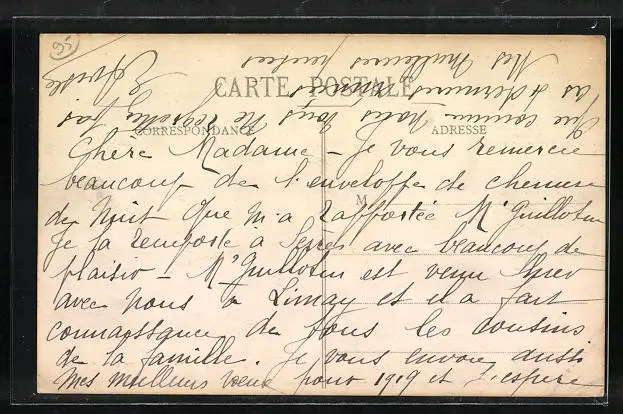 95
CARTE POSTALE
CORRESPONDANCE
ADRESSE
M
Chère Madame - Je vous remercie
beaucoup de l'enveloppe de chemise
de nuit que m'a rapportée Mr Guilloteu
Je la remporte à Sèvres avec beaucoup de
plaisir - Mr Guilloteu est venu hier
avec nous à Limay et il a fait
connaissance de tous les cousins
de la famille. Je vous envoie aussi
mes meilleurs vœux pour 1919 et j'espère
que comme nous vous ne regrettez pas
Mes meilleures